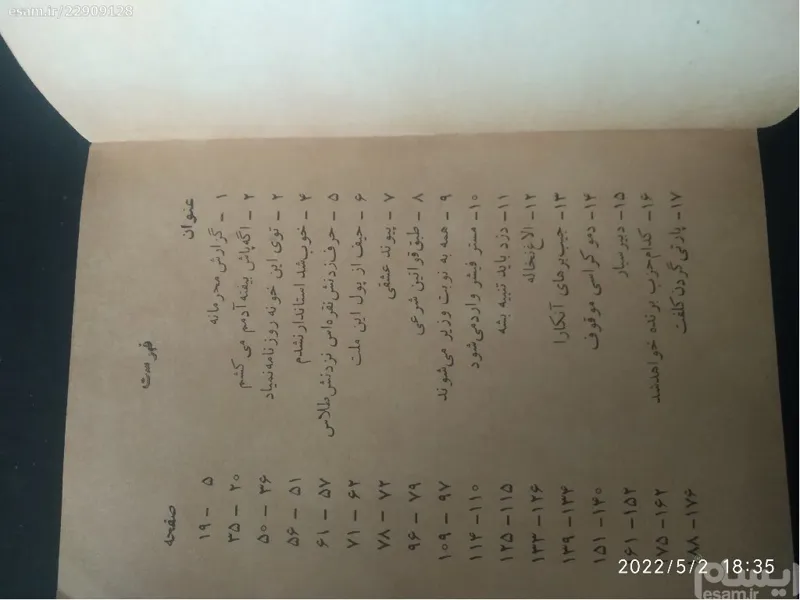 esam.ir/22909128
فهرست
عنوان صفحه
۱ – گزارش محرمانه ۵ – ۱۹
۲ – اگه پاش بیفته آدمم می کشم ۲۰ – ۳۵
۳ – توی این خونه روزنامه نمیاد ۳۶ – ۵۰
۴ – خوب شد استاندار نشدم ۵۱ – ۵۶
۵ – حرف زدنش نقره اس نزدنش طلاس ۵۷ – ۶۱
۶ – حیف از پول این ملت ۶۲ – ۷۱
۷ – پیوند عشقی ۷۲ – ۷۸
۸ – طبق قوانین شرعی ۷۹ – ۹۶
۹ – همه به نوبت وزیر می شوند ۹۷ – ۱۰۹
۱۰ – مستر فیشر وارد می شود ۱۱۰ – ۱۱۴
۱۱ – دزد باید تنبیه بشه ۱۱۵ – ۱۲۵
۱۲ – الاغ نخاله ۱۲۶ – ۱۳۳
۱۳ – جیب برهای آنکارا ۱۳۴ – ۱۳۹
۱۴ – دموکراسی موقوف ۱۴۰ – ۱۵۱
۱۵ – دبیر سیار ۱۵۲ – ۶۱
۱۶ – کدام حزب برنده خواهد شد ۱۶۲ – ۷۵
۱۷ – پارتی گردن کلفت ۱۷۶ – ۸۸
2022/5/2 18:35
ایسام
esam.ir